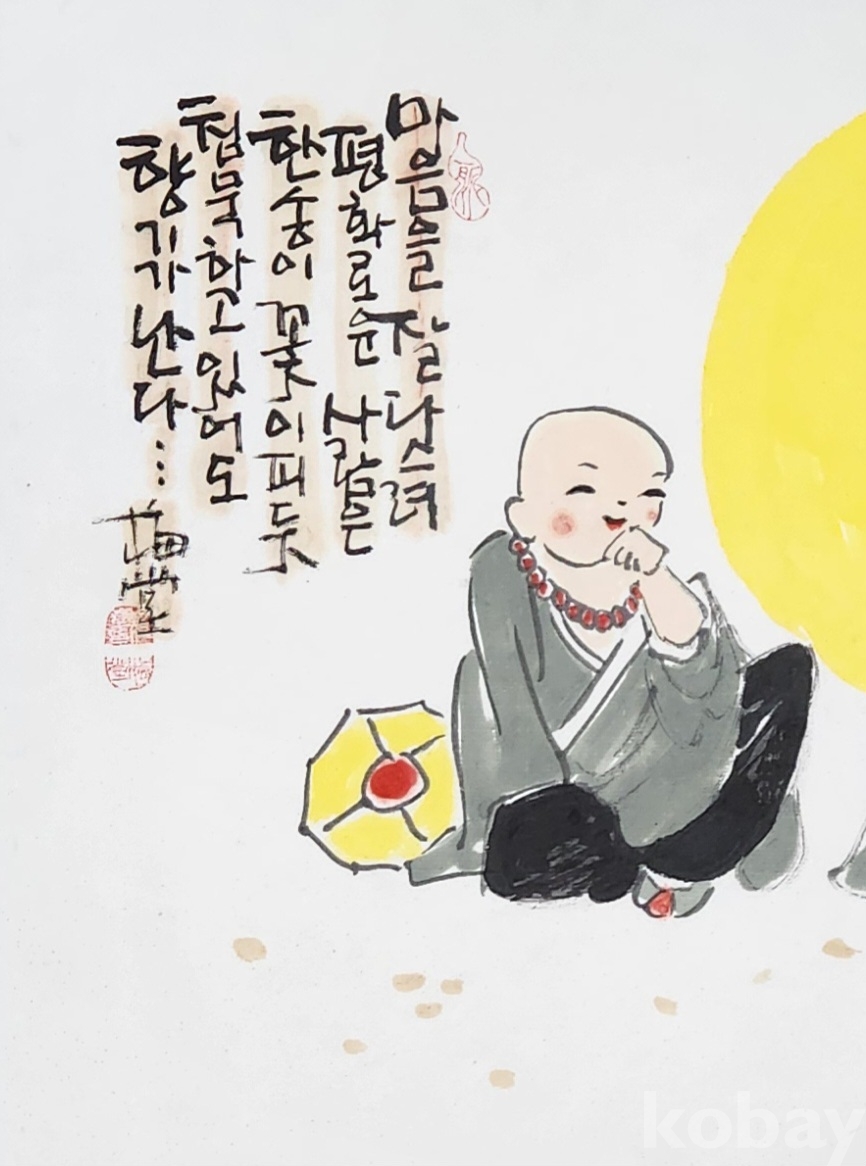 마음을 잘 다스려
평화로운 사람은
한송이 꽃이 피듯
침묵하고 있어도
향기가 난다...
kobay